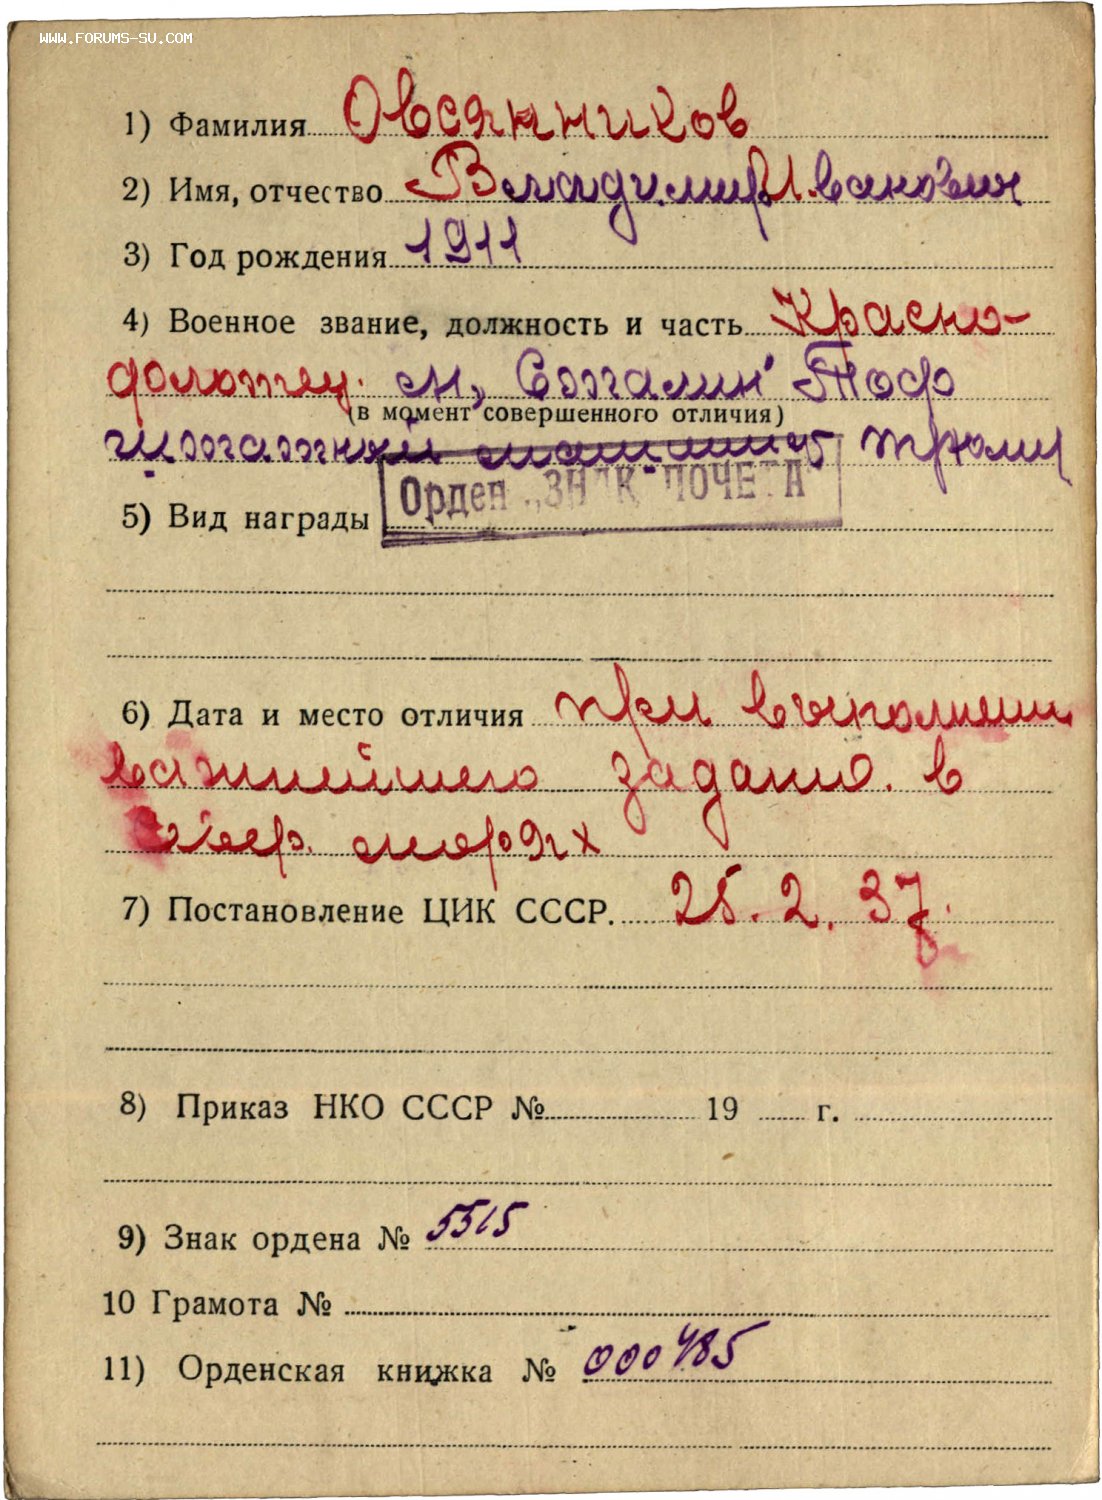 WWW.FORUMS-SU.COM
1) Фамилия Овсянников
2) Имя, отчество Владимир Иванович
3) Год рождения 1911
4) Военное звание, должность и часть Красно-
флотец. Тоф
(в момент совершенного отличия)
штатный
5) Вид награды Орден „ЗНАК ПОЧЕТА"
6) Дата и место отличия при выполнении
важнейшего задания. в
морях
7) Постановление ЦИК СССР. 25.2.37.
8) Приказ НКО СССР № 19 г.
9) Знак ордена № 5515
10 Грамота №
11) Орденская книжка № 000485